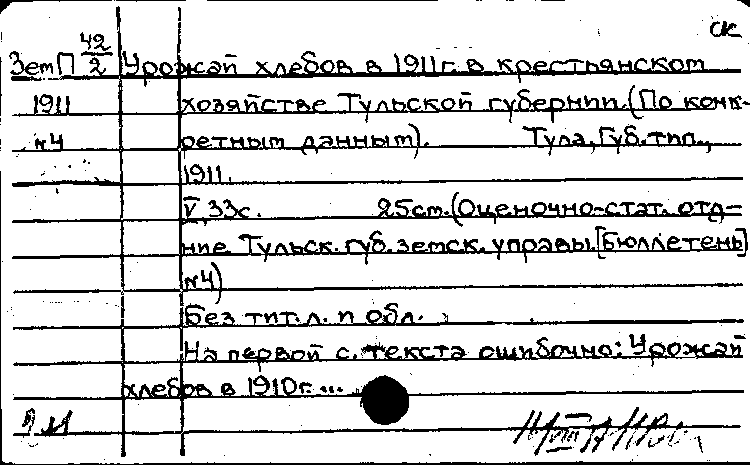 ск
ЗемП 42/2 Урожай хлебов в 1911г. в крестьянском
1911 хозяйстве Тульской губернии. (По конк-
№4 ретным данным). Тула, Губ. тип.,
1911.
V, 33с. 25см. (Оценочно-стат. отд-
ние Тульск. губ. земск. управы. [Бюллетень]
№4)
Без тит. л. и обл.
На первой с. текста ошибочно: Урожай
хлебов в 1910г. ...